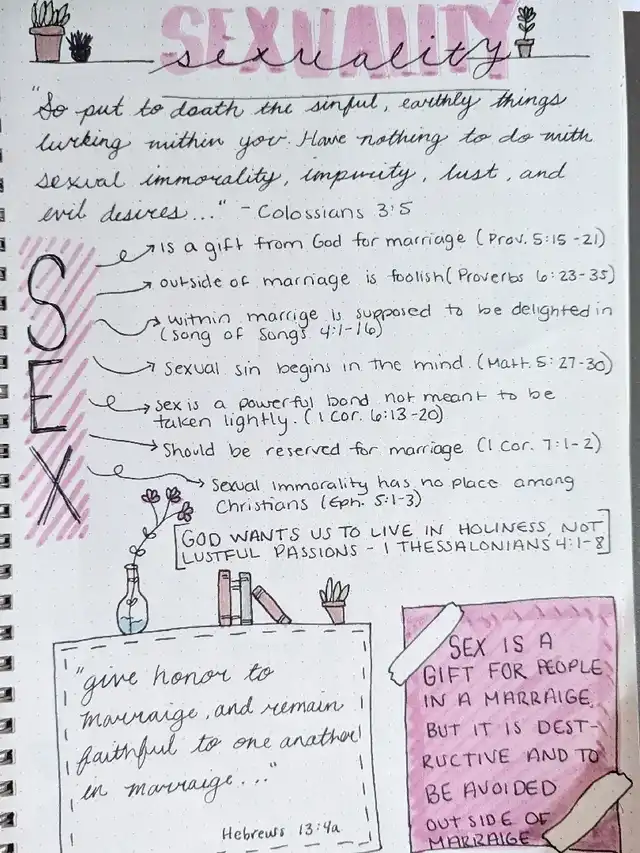 SEXUALITY
sexuality
"So put to death the sinful, earthly things
lurking within you. Have nothing to do with
sexual immorality, impurity, lust, and
evil desires..." - Colossians 3:5
SEX
Is a gift from God for marriage (Prov. 5:15-21)
outside of marriage is foolish (Proverbs 6:23-35)
within marrige is supposed to be delighted in
(Song of Songs 4:1-16)
Sexual sin begins in the mind. (Matt. 5:27-30)
Sex is a powerful bond not meant to be
taken lightly. (1 Cor. 6:13-20)
Should be reserved for marriage (1 Cor. 7:1-2)
Sexual immorality has no place among
Christians (Eph. 5:1-3)
[GOD WANTS US TO LIVE IN HOLINESS, NOT
LUSTFUL PASSIONS - 1 THESSALONIANS 4:1-8]
"give honor to
marraige, and remain
faithful to one another
in marraige..."
Hebrews 13:4a
SEX IS A
GIFT FOR PEOPLE
IN A MARRAIGE,
BUT IT IS DEST-
RUCTIVE AND TO
BE AVOIDED
OUTSIDE OF
MARRAIGE